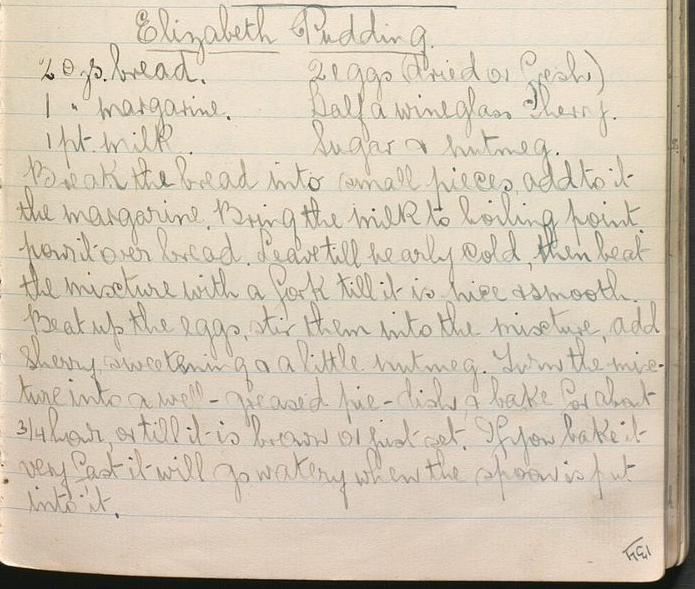 Elizabeth Pudding.
2 ozs. bread. 2 eggs (dried or fresh)
1 " margarine. Half a wineglass sherry.
1 pt. milk. Sugar & nutmeg.
Break the bread into small pieces, add to it
the margarine. Bring the milk to boiling point
pour it over bread. Leave till nearly cold, then beat
the mixture with a fork till it is nice & smooth.
Beat up the eggs, stir them into the mixture, add
sherry, sweetening & a little nutmeg. Turn the mix-
ture into a well-greased pie-dish, & bake for about
3/4 hour, or till it is brown or just set. If you bake it
very fast it will go watery when the spoon is put
into it.